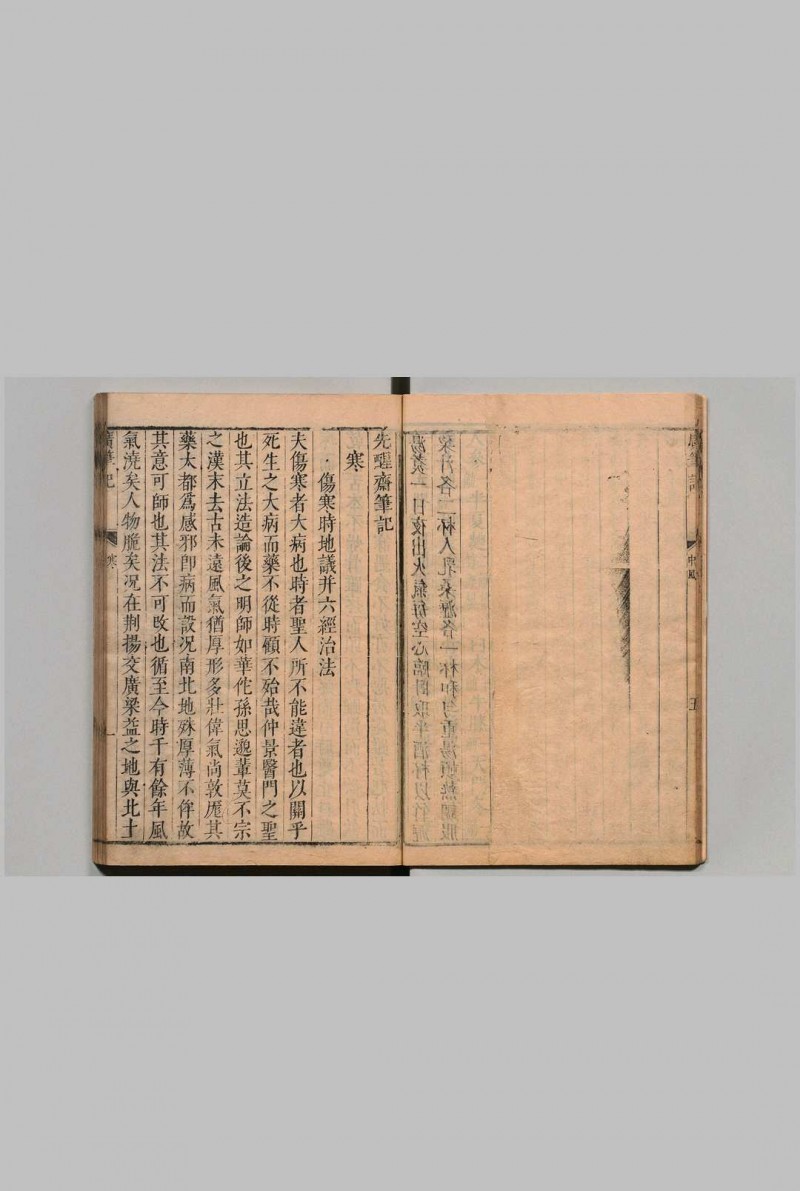 廣筆記
中風
五
先醒齋筆記
寒
傷寒時地議并六經治法
夫傷寒者大病也時者聖人所不能違者也以關乎
死生之大病而藥不從時顧不殆哉仲景醫門之聖
也其立法造論後之明師如華佗孫思邈輩莫不宗
之漢末去古未遠風氣猶厚形多壯偉氣尚敦厖其
藥太都爲感邪卽病而設況南北地殊厚薄不侔故
其意可師也其法不可攺也循至今時千有餘年風
氣澆矣人物脆矣況在荆揚交廣梁益之地與北土
廣筆記
寒
一